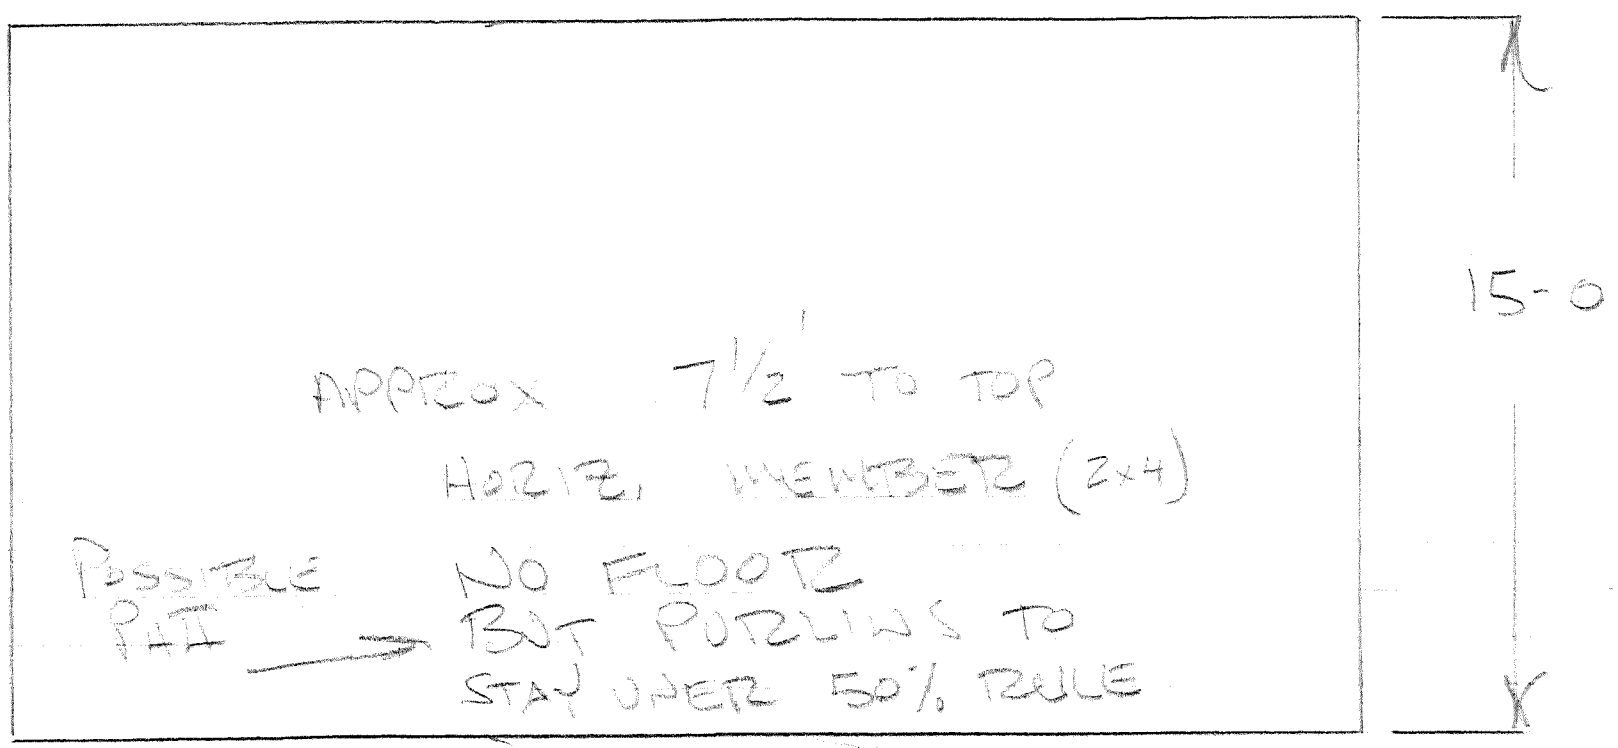 15-0
APPROX 7 1/2' TO TOP
HORIZ. MEMBER (2x4)
POSSIBLE NO FLOOR
PH II BUT PURLINS TO
STAY UNER 50% RULE